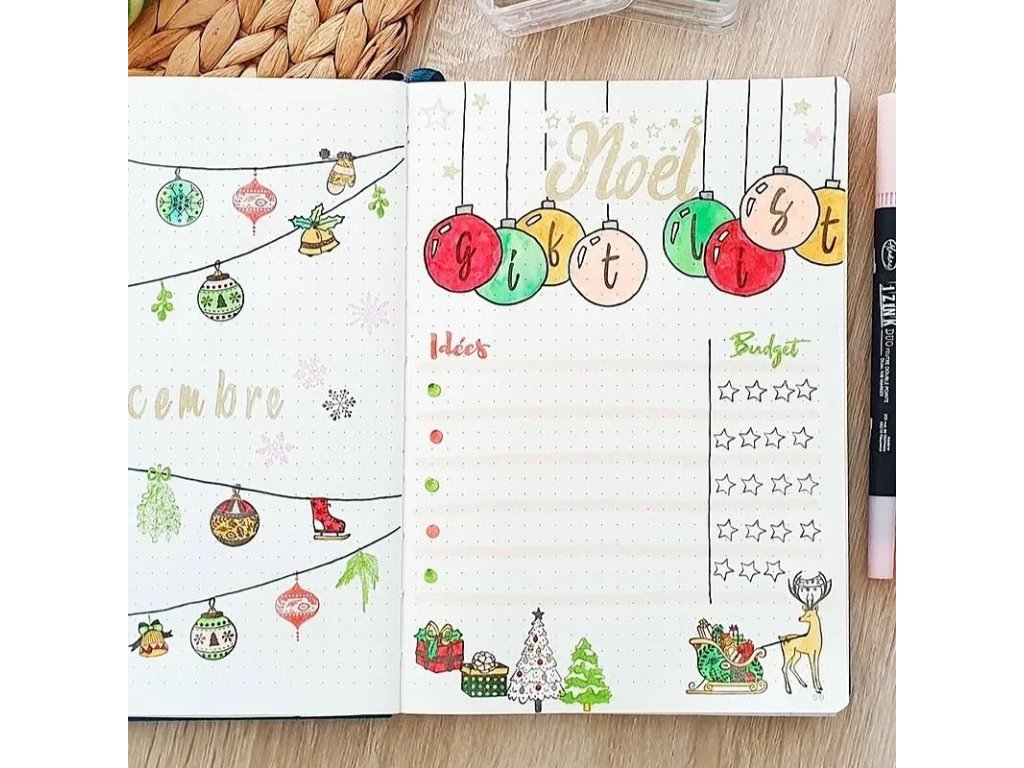 cembre
Noël
gift list
Idées
Budget
IZINK DUO
59